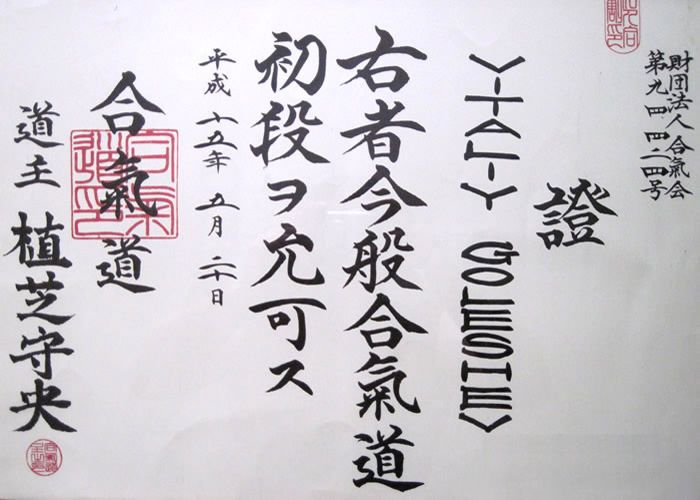 財団法人 合氣会
第九四四二四号
證
VITALIY GOLESHEV
右者今般合氣道
初段ヲ允可ス
平成 十五年 五月 二十日
合氣道
道主 植芝守央